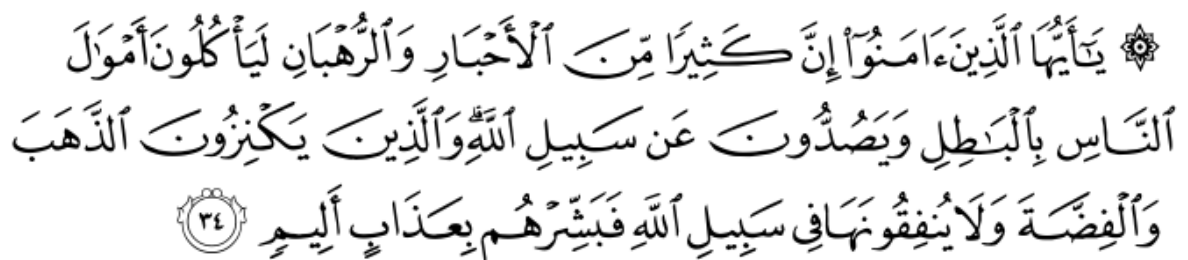 ۞ يَٰٓأَيُّهَا ٱلَّذِينَ ءَامَنُوٓا۟ إِنَّ كَثِيرًا مِّنَ ٱلْأَحْبَارِ وَٱلرُّهْبَانِ لَيَأْكُلُونَ أَمْوَٰلَ
ٱلنَّاسِ بِٱلْبَٰطِلِ وَيَصُدُّونَ عَن سَبِيلِ ٱللَّهِ ۗ وَٱلَّذِينَ يَكْنِزُونَ ٱلذَّهَبَ
وَٱلْفِضَّةَ وَلَا يُنفِقُونَهَا فِى سَبِيلِ ٱللَّهِ فَبَشِّرْهُم بِعَذَابٍ أَلِيمٍ ٣٤